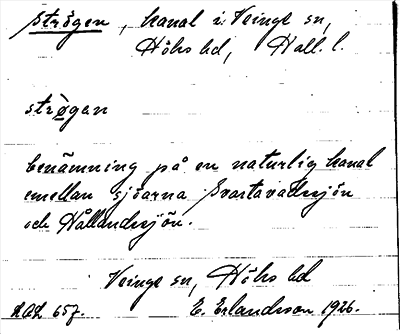 Strögen, kanal i Veinge sn,
Höks hd, Hall. l.
strøgen
benämning på en naturlig kanal
emellan sjöarna Svartavadssjön
och Hållandssjön.
Veinge sn, Höks hd
E. Erlandsson 1926.